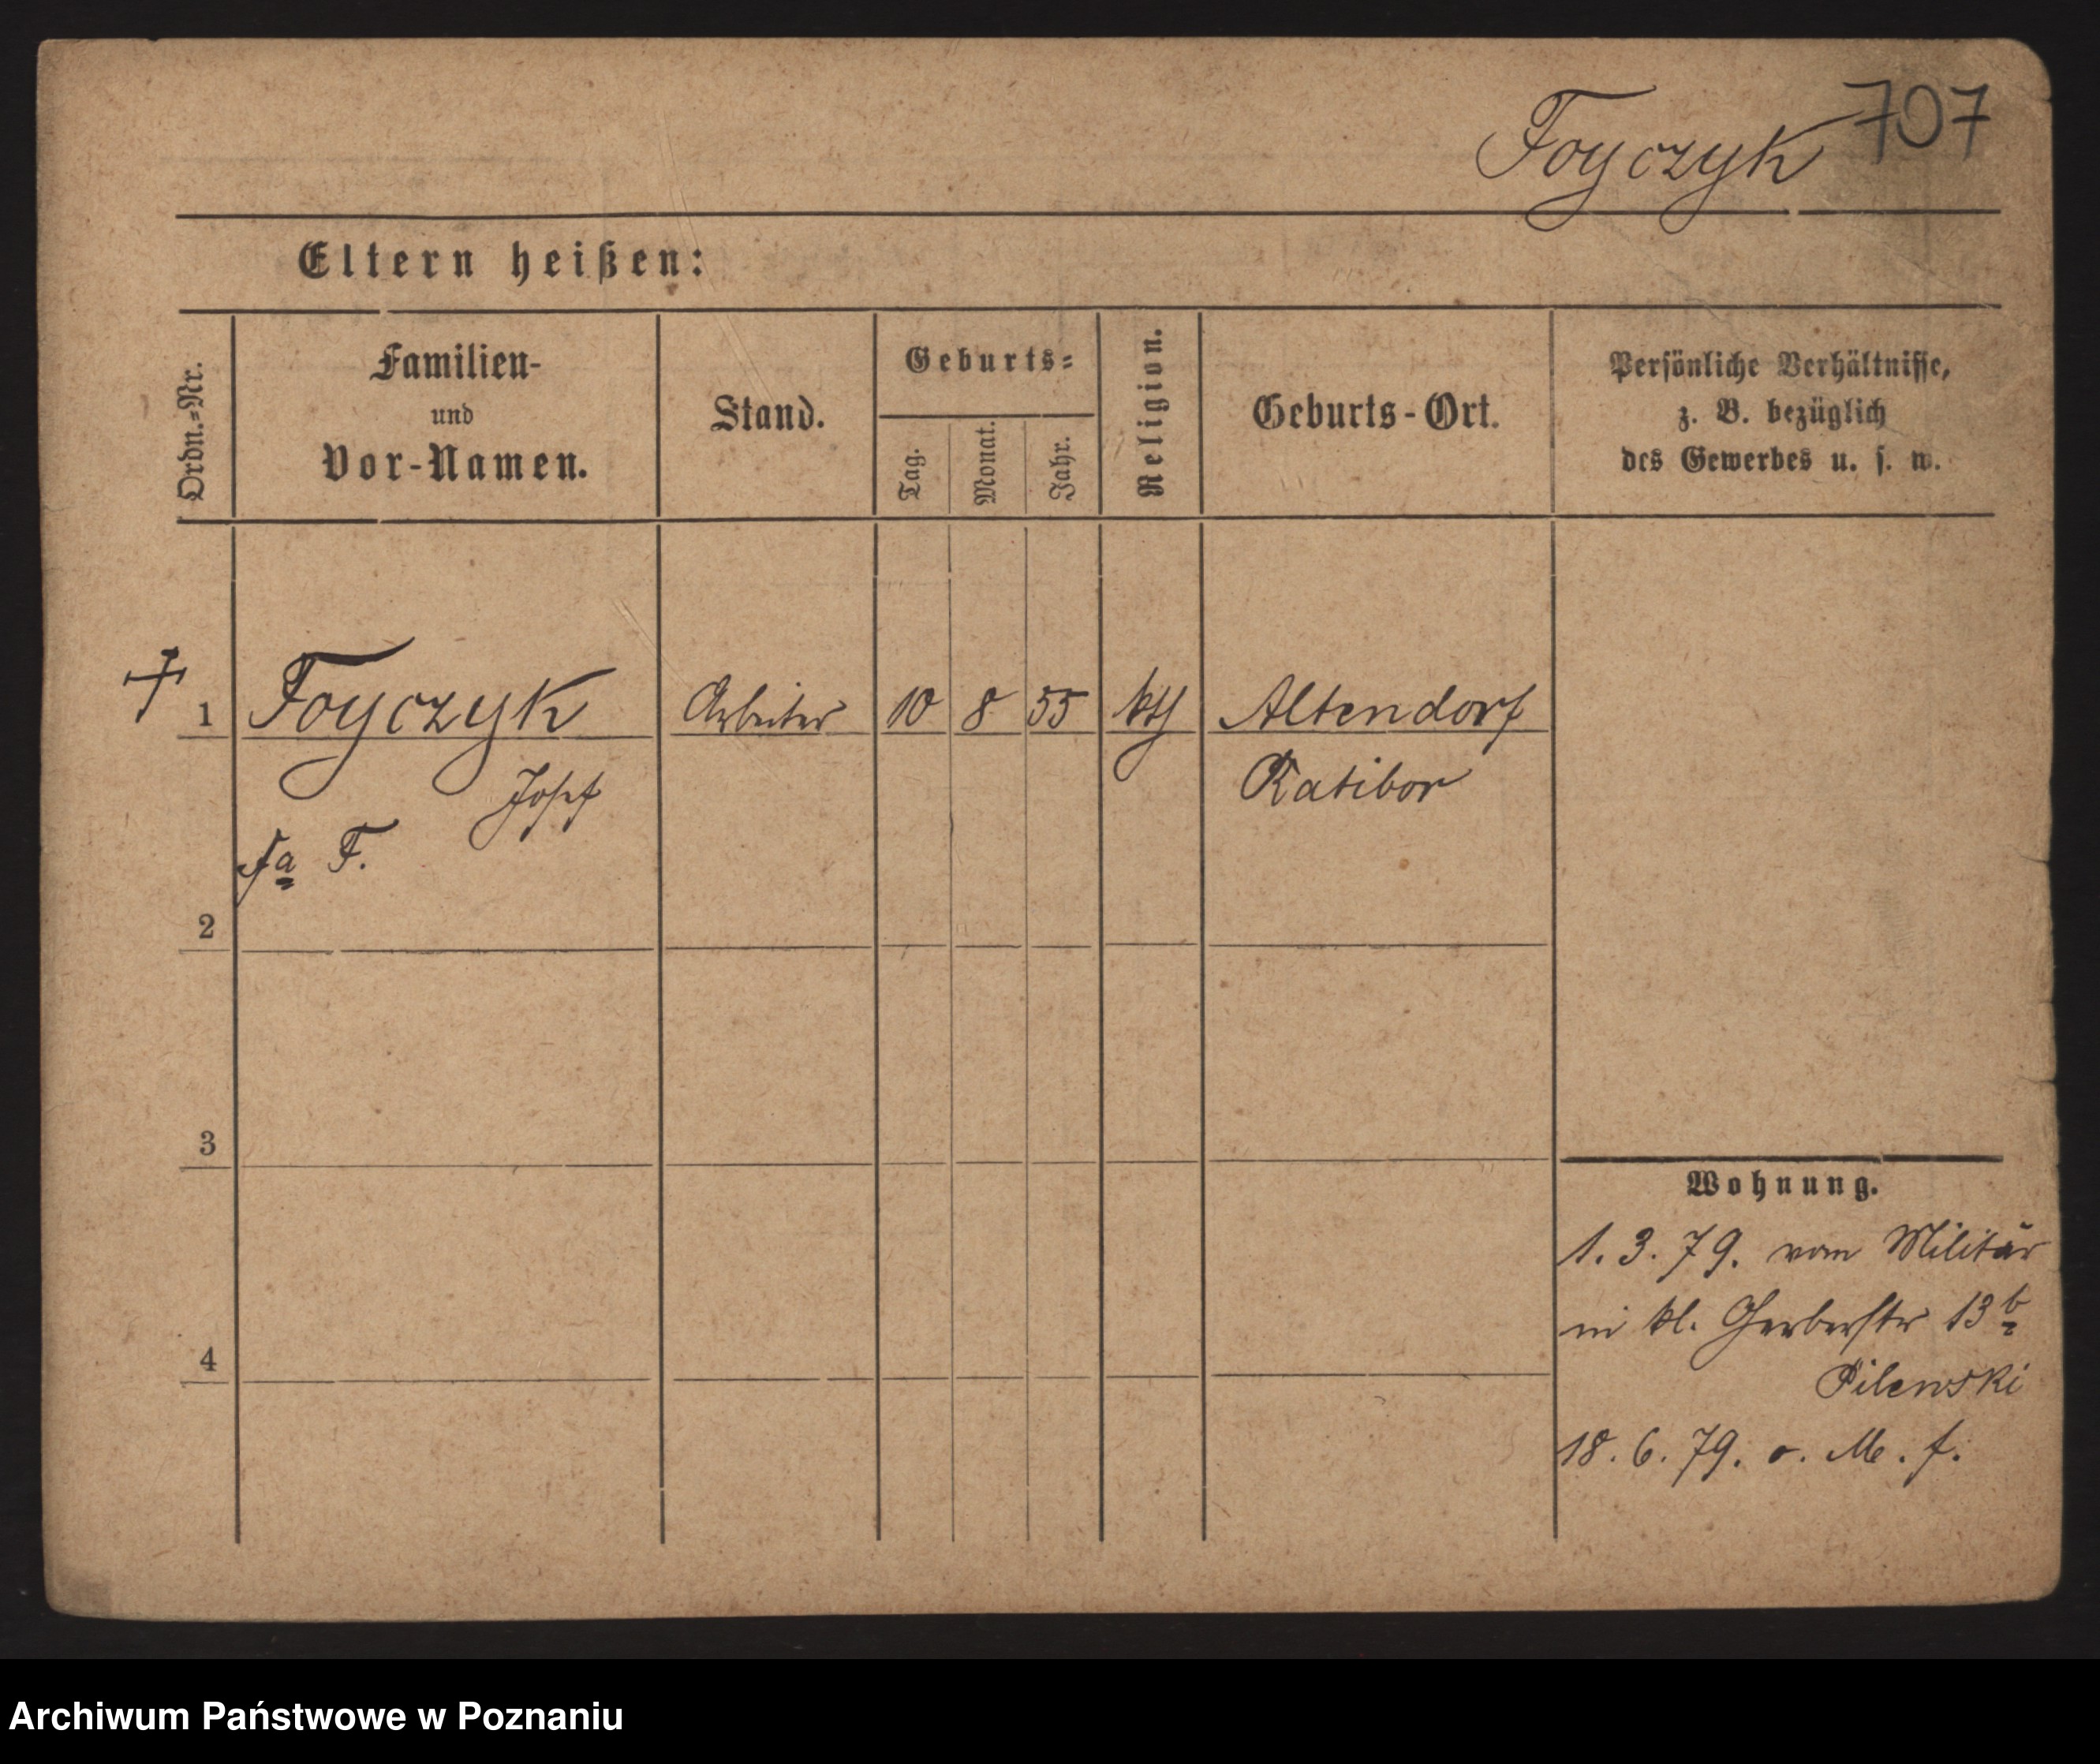 Foyczyk 707
Eltern heißen:
Ordn.-Nr.
Familien-
und
Vor-Namen.
Stand.
Geburts-
Tag.
Monat.
Jahr.
Religion.
Geburts-Ort.
Persönliche Verhältnisse,
z. B. bezüglich
des Gewerbes u. s. w.
1 Foyczyk Arbeiter 10 8 55 kth Altendorf
Josef Ratibor
fa F.
2
3
4
Wohnung.
1. 3. 79. vom Militär
in kl. Gerberstr 13b
Pilewski
18. 6. 79. o. M. f.
Archiwum Państwowe w Poznaniu